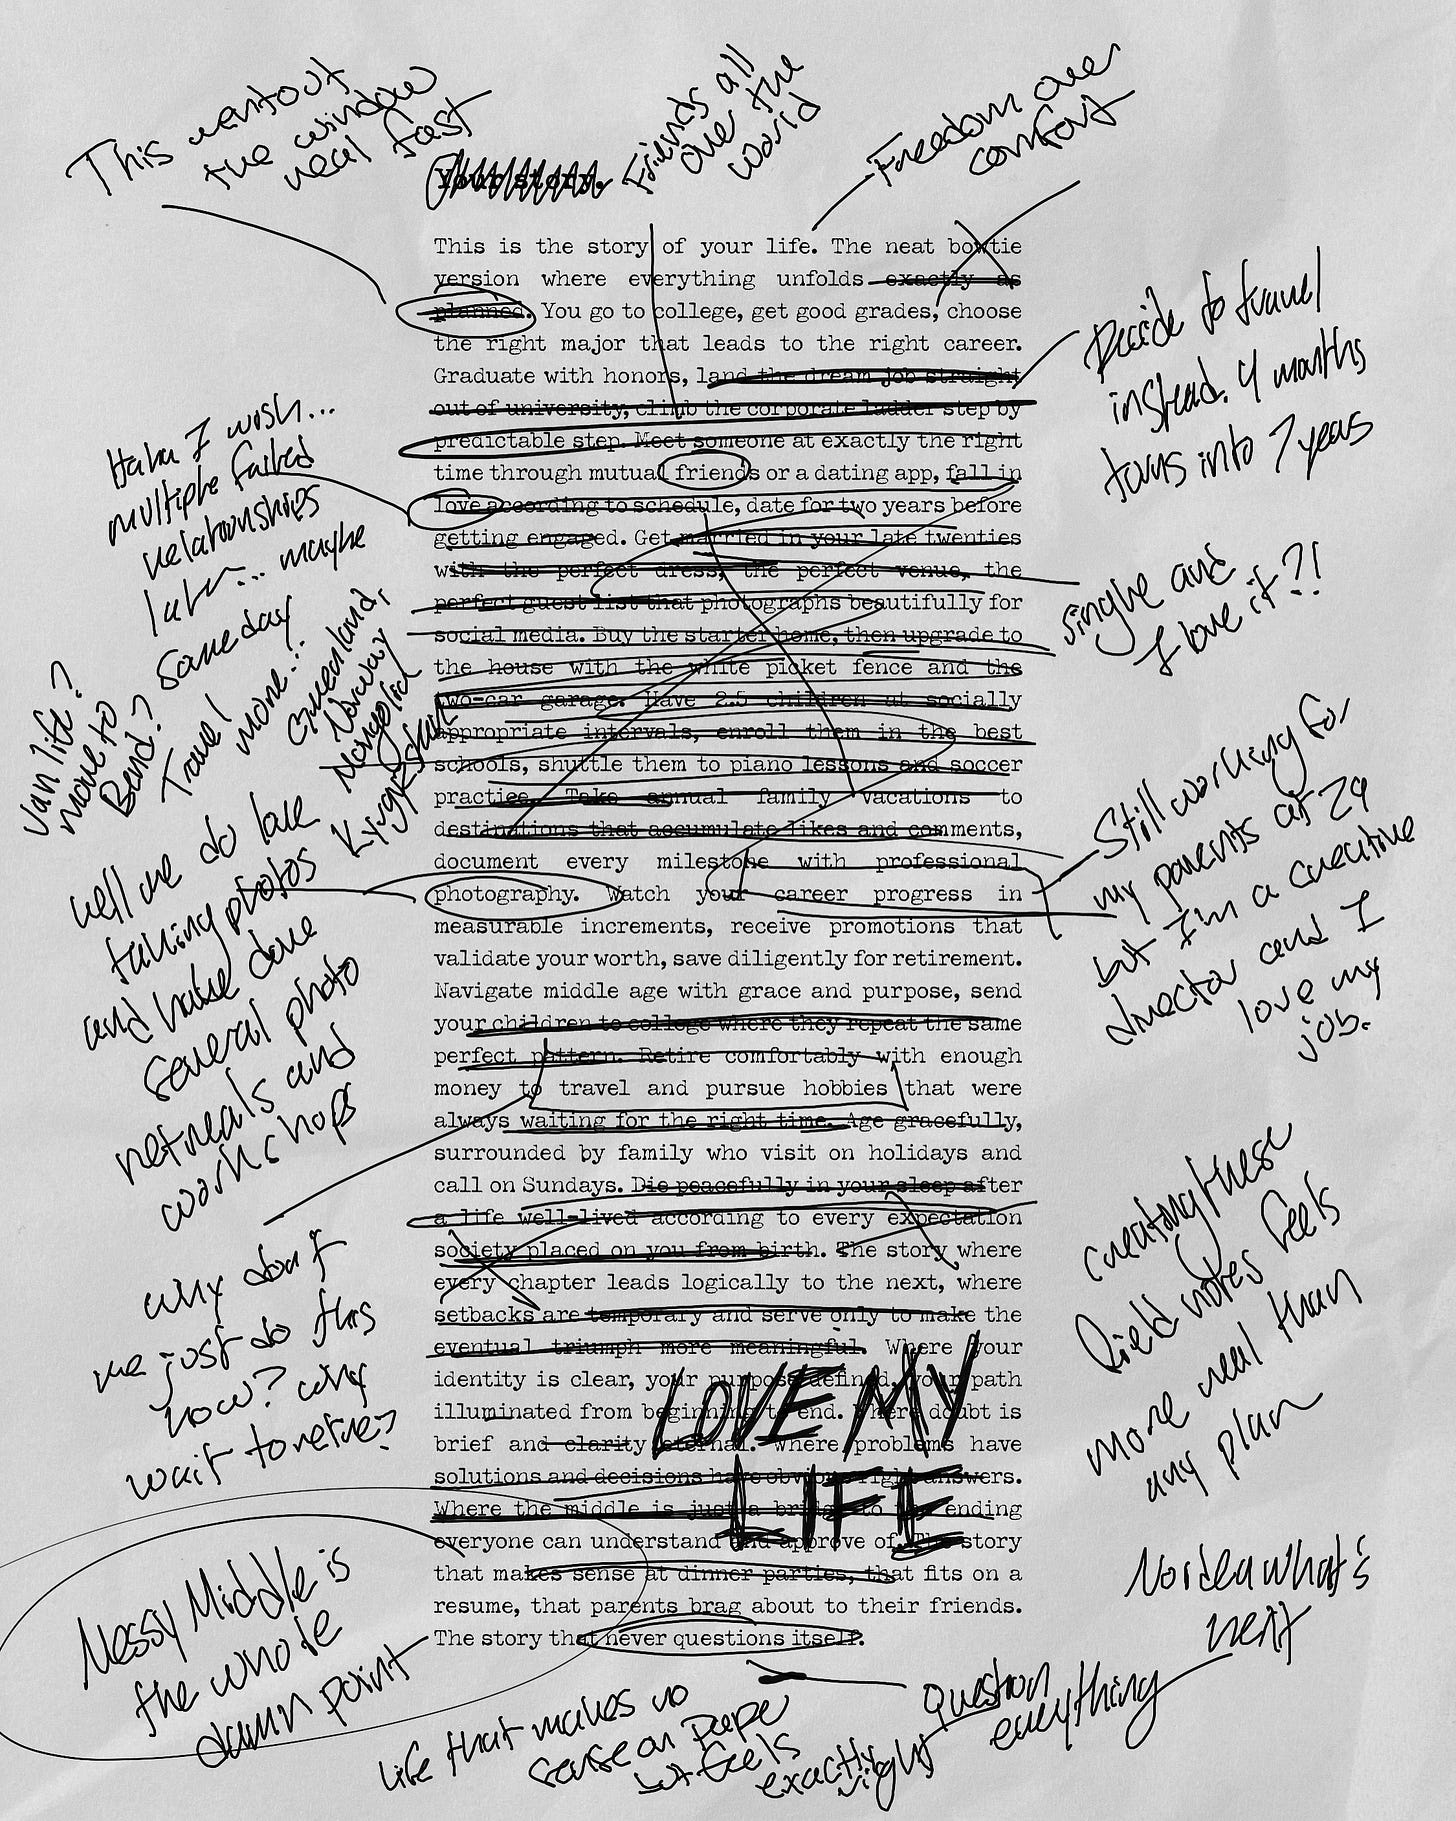 This went out
the window
real fast
Friends all
over the
world
Freedom over
comfort
Your story.
This is the story of your life. The neat bowtie
version where everything unfolds exactly as
planned. You go to college, get good grades, choose
the right major that leads to the right career.
Graduate with honors, land the dream job straight
out of university, climb the corporate ladder step by
predictable step. Meet someone at exactly the right
time through mutual friends or a dating app, fall in
love according to schedule, date for two years before
getting engaged. Get married in your late twenties
with the perfect dress, the perfect venue, the
perfect guest list that photographs beautifully for
social media. Buy the starter home, then upgrade to
the house with the white picket fence and the
two-car garage. Have 2.5 children at socially
appropriate intervals, enroll them in the best
schools, shuttle them to piano lessons and soccer
practice. Take annual family vacations to
destinations that accumulate likes and comments,
document every milestone with professional
photography. Watch your career progress in
measurable increments, receive promotions that
validate your worth, save diligently for retirement.
Navigate middle age with grace and purpose, send
your children to college where they repeat the same
perfect pattern. Retire comfortably with enough
money to travel and pursue hobbies that were
always waiting for the right time. Age gracefully,
surrounded by family who visit on holidays and
call on Sundays. Die peacefully in your sleep after
a life well-lived according to every expectation
society placed on you from birth. The story where
every chapter leads logically to the next, where
setbacks are temporary and serve only to make the
eventual triumph more meaningful. Where your
identity is clear, your purpose defined, your path
illuminated from beginning to end. Where doubt is
brief and clarity eternal. Where problems have
solutions and decisions have obvious right answers.
Where the middle is just a bridge to the ending
everyone can understand and approve of. The story
that makes sense at dinner parties, that fits on a
resume, that parents brag about to their friends.
The story that never questions itself.
LOVE MY
LIFE
Haha I wish...
multiple failed
relationships
later... maybe
someday
Van life?
move to
Bend?
Travel
more...
Greenland,
Norway
Mongolia
Kyrgyzstan
well we do love
taking photos
and have done
several photo
retreats and
workshops
why don't
we just do this
now? why
wait to retire?
Messy Middle is
the whole
damn point
Decide to travel
instead. 4 months
turns into 7 years
single and
I love it?!
Still working for
my parents at 29
but I'm a creative
director and I
love my
job.
creating these
field notes feels
more real than
any plan
No idea what's
next
Question
everything
life that makes no
sense on paper
but feels
exactly right